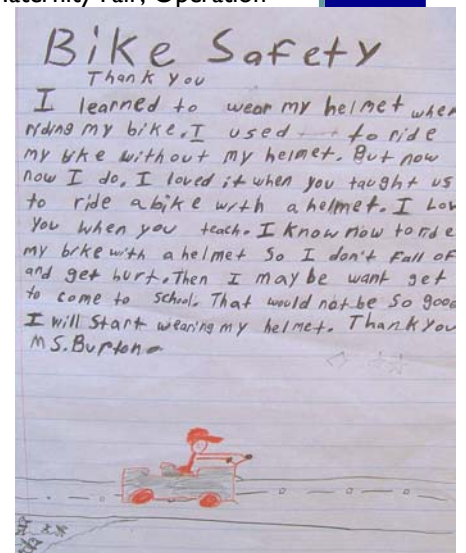 aternity Fair, Operation
Bike Safety
Thank you
I learned to wear my helmet when
riding my bike. I used to ride
my bike without my helmet. But now
now I do. I loved it when you taught us
to ride a bike with a helmet. I Lov
you when you teach. I know now to ride
my bike with a helmet So I don't Fall of
and get hurt. Then I may be want get
to come to School. That would not be So good
I will Start wearing my helmet. Thank you
MS. Burton